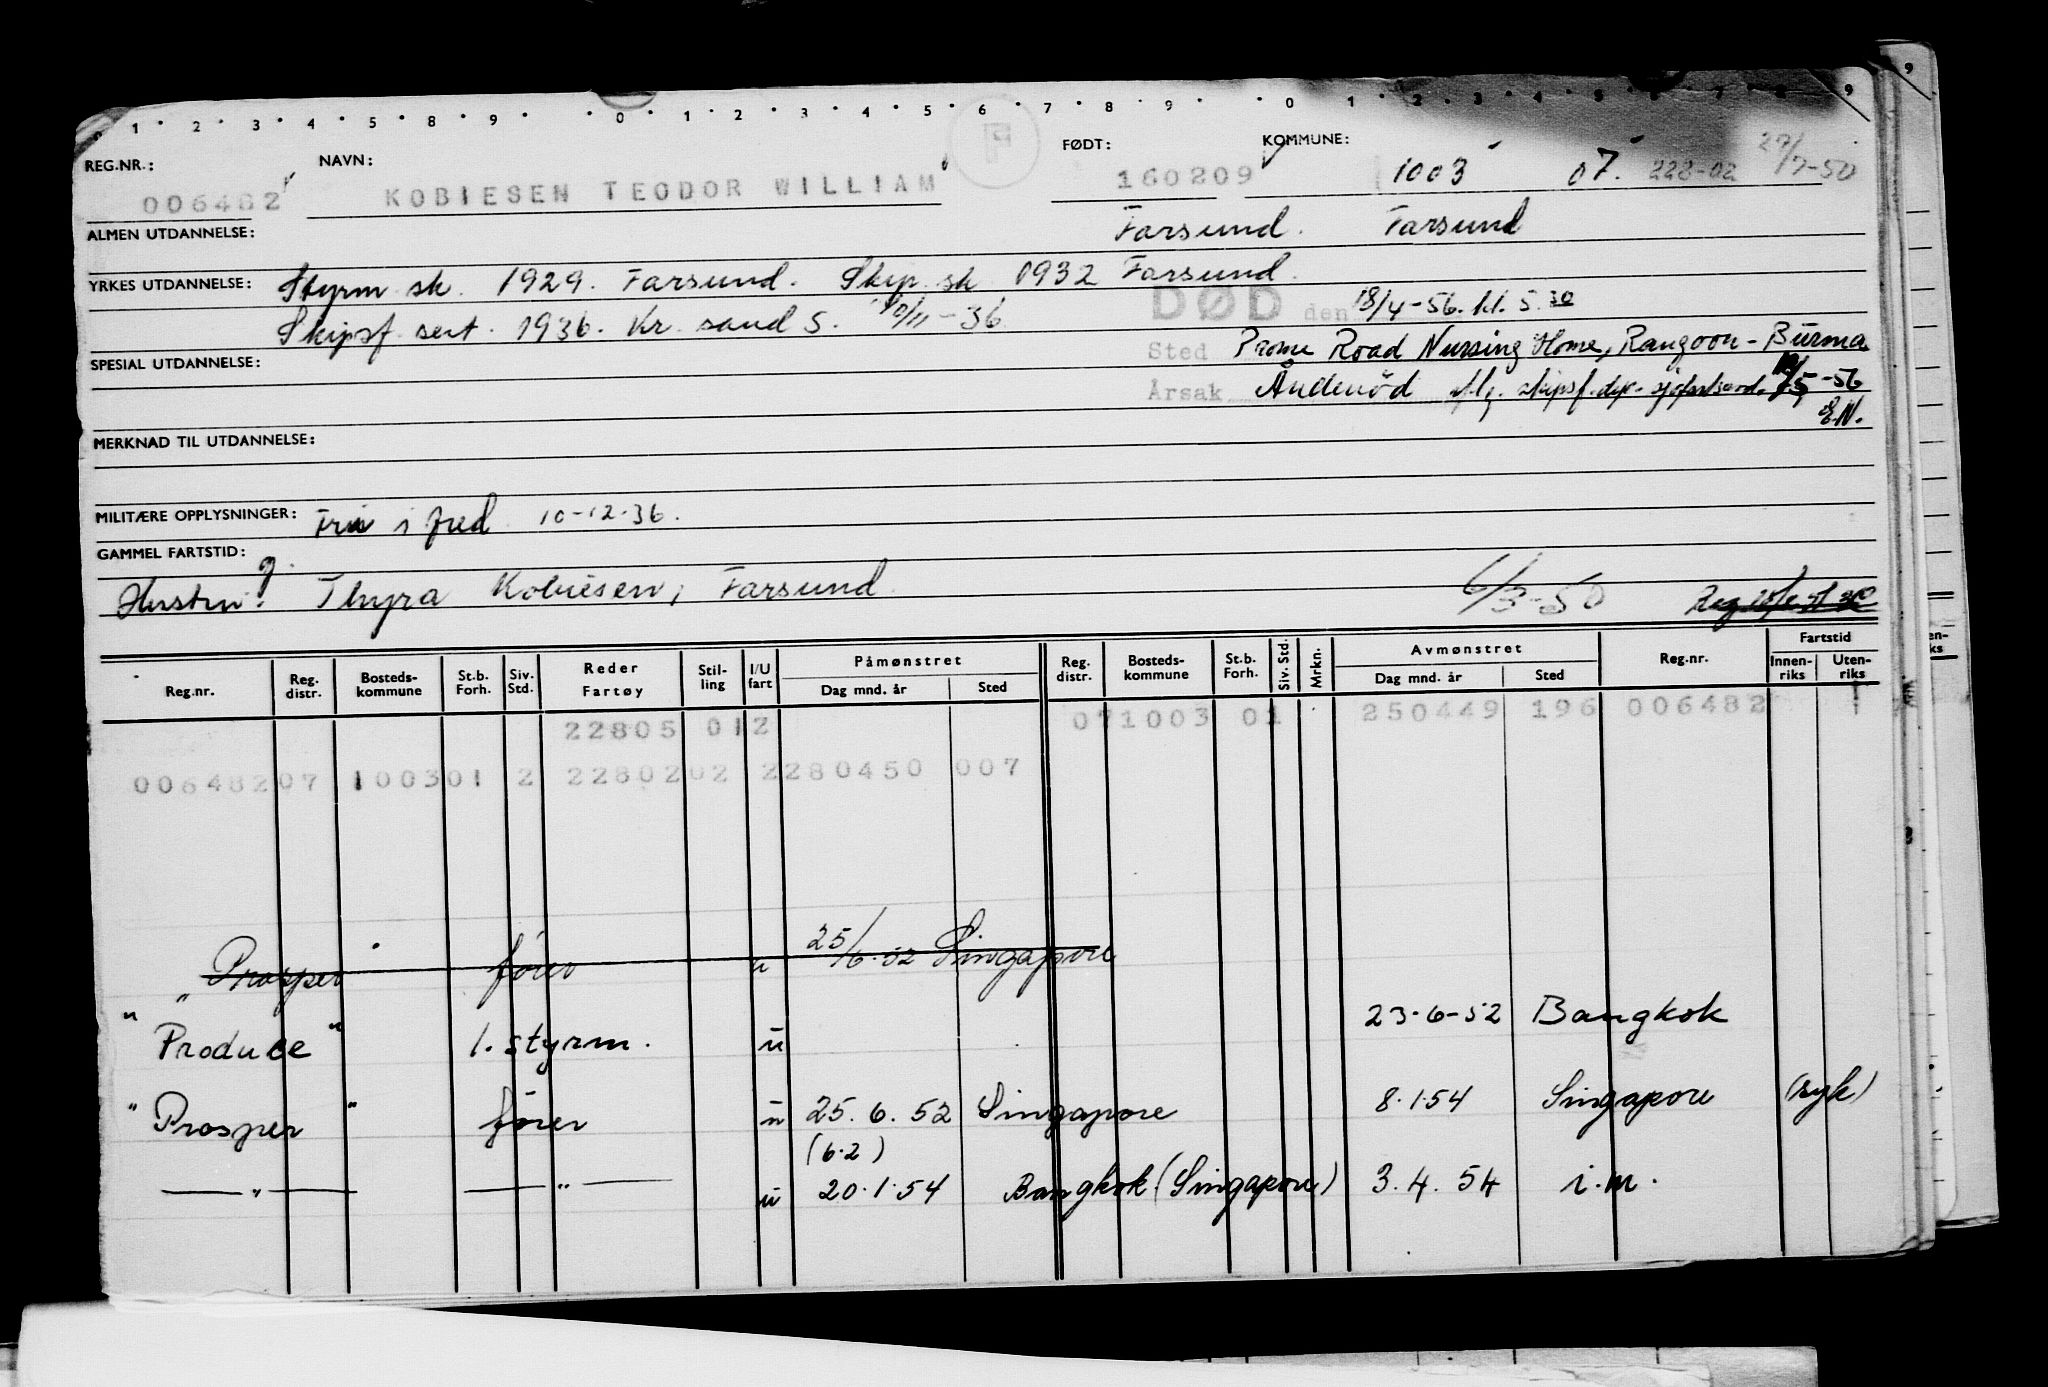 1 · 2 · 3 · 4 · 5 · 8 · 9 · · 0 · 1 · 2 · 3 · 4 · 5 · 6 · 7 · 8 · 9 · · 0 1 · 2 · 3 · 4 · 5 · 6 · 7 · 8 · 9
REG.NR.: NAVN: F FØDT: KOMMUNE: 27/7-50
006482 KOBIESEN TEODOR WILLIAM 160209 1003 07. 228-02
ALMEN UTDANNELSE: Farsund. Farsund
YRKES UTDANNELSE: Styrm.sk. 1929. Farsund. Skip.sk. 1932 Farsund.
Skipsf. sert. 1936. Kr. sand S. 10/11-36 DØD den 18/4-56. kl. 5.30
SPESIAL UTDANNELSE: Sted Prome Road Nursing Home, Rangoon-Burma
Årsak Åndenød iflg. skipsf. /5-56
E.N.
MERKNAD TIL UTDANNELSE:
MILITÆRE OPPLYSNINGER: Fri i fred 10-12-36.
GAMMEL FARTSTID:
Hustru: g. Thyra Kobiesen, Farsund 6/3-50
Reg.nr. Reg. distr. Bosteds-kommune St.b. Forh. Siv. Std. Reder Fartøy Stil-ling I/U fart Påmønstret Dag mnd. år Sted Reg. distr. Bosteds-kommune St.b. Forh. Siv. Std. Mrkn. Avmønstret Dag mnd. år Sted Reg.nr. Fartstid Innen-riks Uten-riks
22805 012 071003 01 250449 196 006482
00648207 100301 2 2280202 2280450 007
"Prosper fører u 25/6.52 Singapore
"Produce" 1. styrm. u 23-6-52 Bangkok
"Prosper" fører u 25.6.52 Singapore 8.1.54 Singapore (syk)
(6.2)
—"— —"— u 20.1.54 Bangkok (Singapore) 3.4.54 i.m.